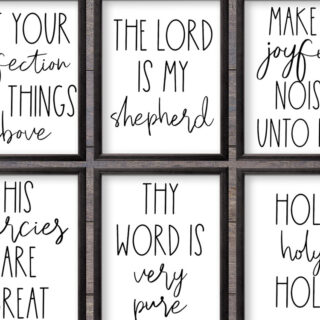 YOUR
fection
THINGS
bove
THE LORD
IS MY
shepherd
MAKE
joyfu
NOIS
UNTO
HIS
ercies
ARE
REAT
THY
WORD IS
very
pure
HOL
holy
HOL